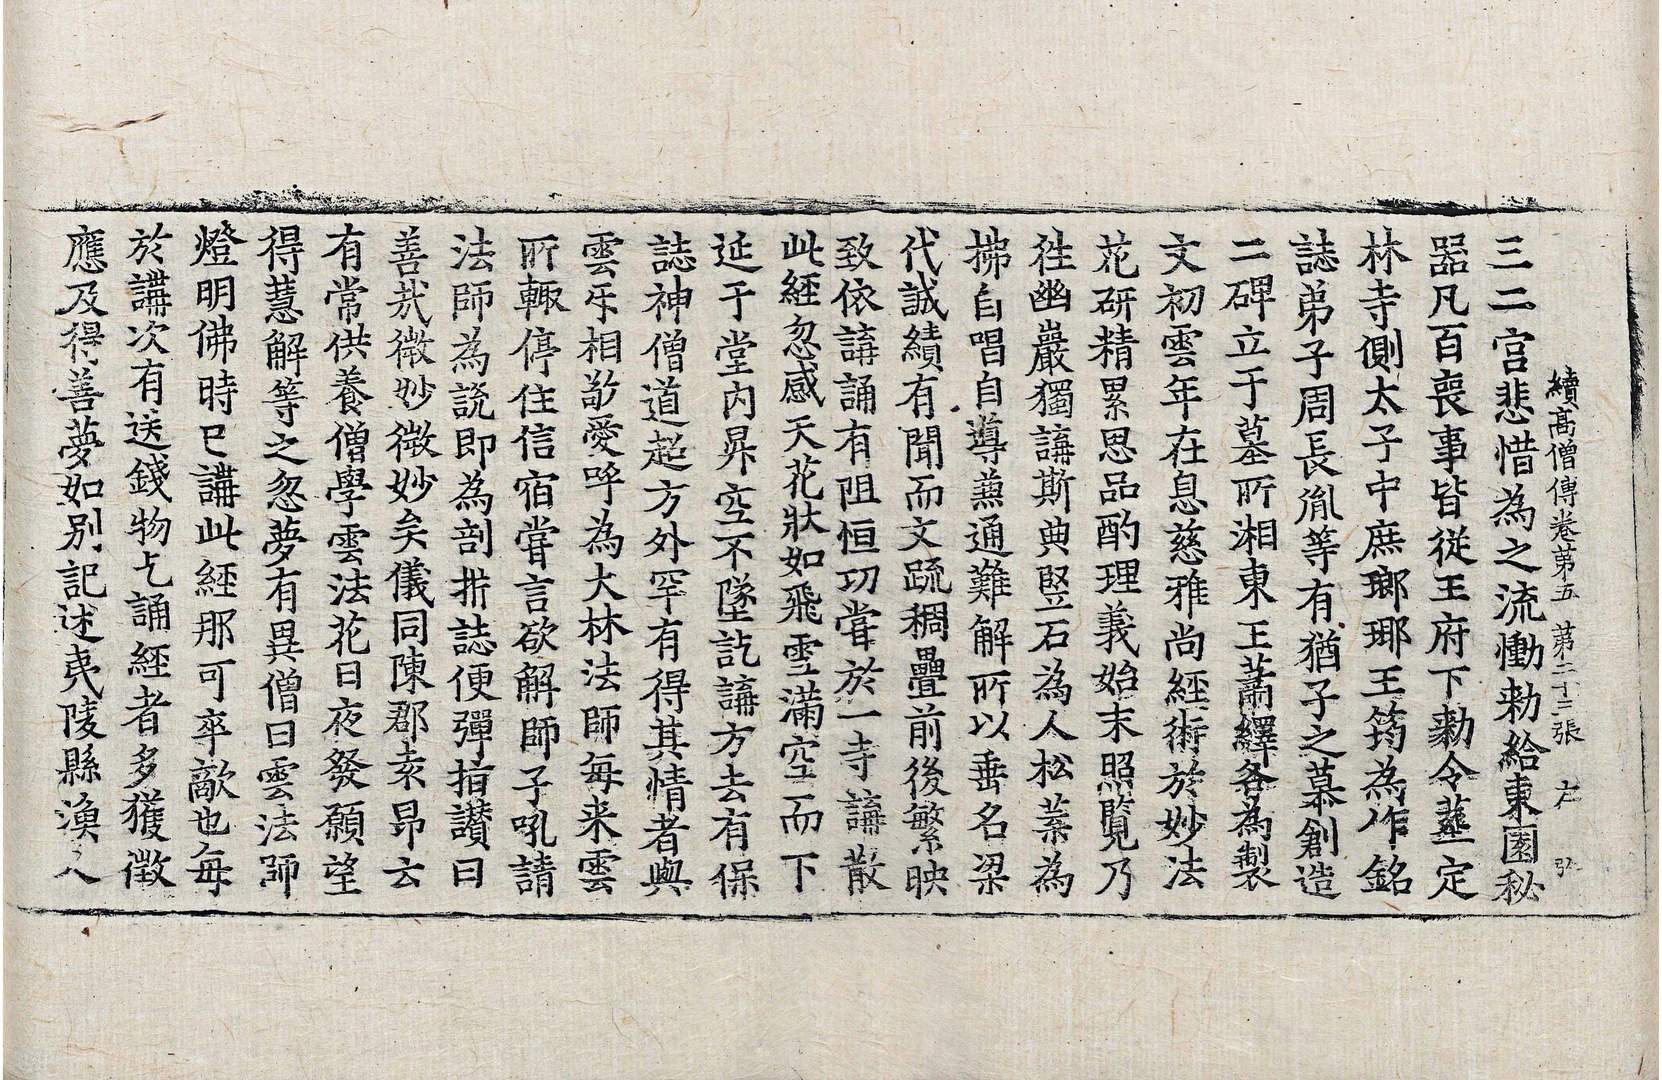 續高僧傳卷第五 第二十三張 户 弥
三二宫悲惜為之流慟勅給東園秘
器凡百喪事皆従王府下勅令葬定
林寺側太子中庶瑯琊王筠為作銘
誌弟子周長胤等有猶子之慕創造
二碑立于墓所湘東王蕭繹各為製
文初雲年在息慈雅尚經術於妙法
花研精累思品酌理義始末照覽乃
往幽巖獨講斯典竪石為人松葉為
拂自唱自導兼通難解所以垂名梁
代誠績有聞而文疏稠疊前後繁映
致依講誦有阻恒切嘗於一寺講散
此經忽感天花狀如飛雪滿空而下
延于堂内昇空不墜訖講方去有保
誌神僧道超方外罕有得其情者與
雲互相敬愛呼為大林法師每来雲
所輙停住信宿嘗言欲解師子吼請
法師為說即為剖拚誌便彈指讃曰
善㢤微妙微妙矣儀同陳郡袁昂云
有常供養僧學雲法花日夜發願望
得慧解等之忽夢有異僧曰雲法師
燈明佛時已講此經那可卒敵也每
於講次有送錢物乞誦經者多獲徵
應及得善夢如別記述夷陵縣漁人